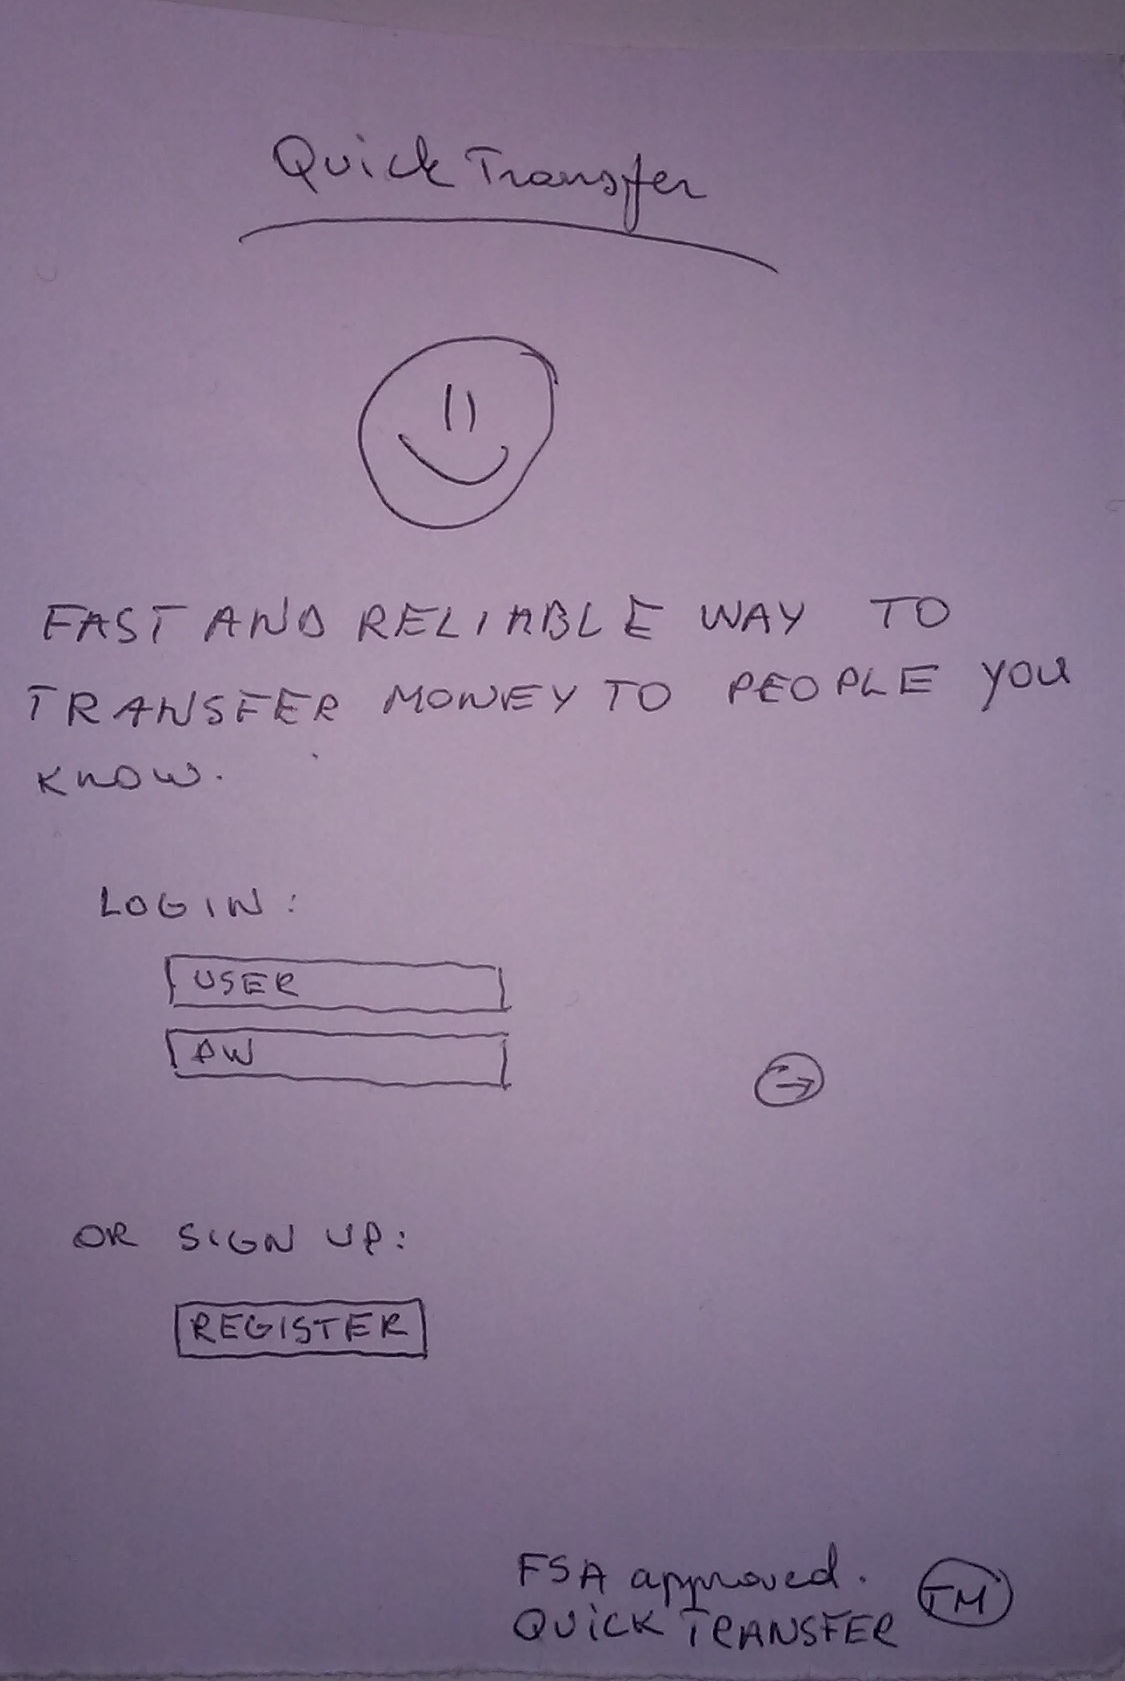 Quick Transfer
FAST AND RELIABLE WAY TO
TRANSFER MONEY TO PEOPLE YOU
KNOW.
LOGIN:
USER
PW
OR SIGN UP:
REGISTER
FSA approved.
QUICK TRANSFER TM